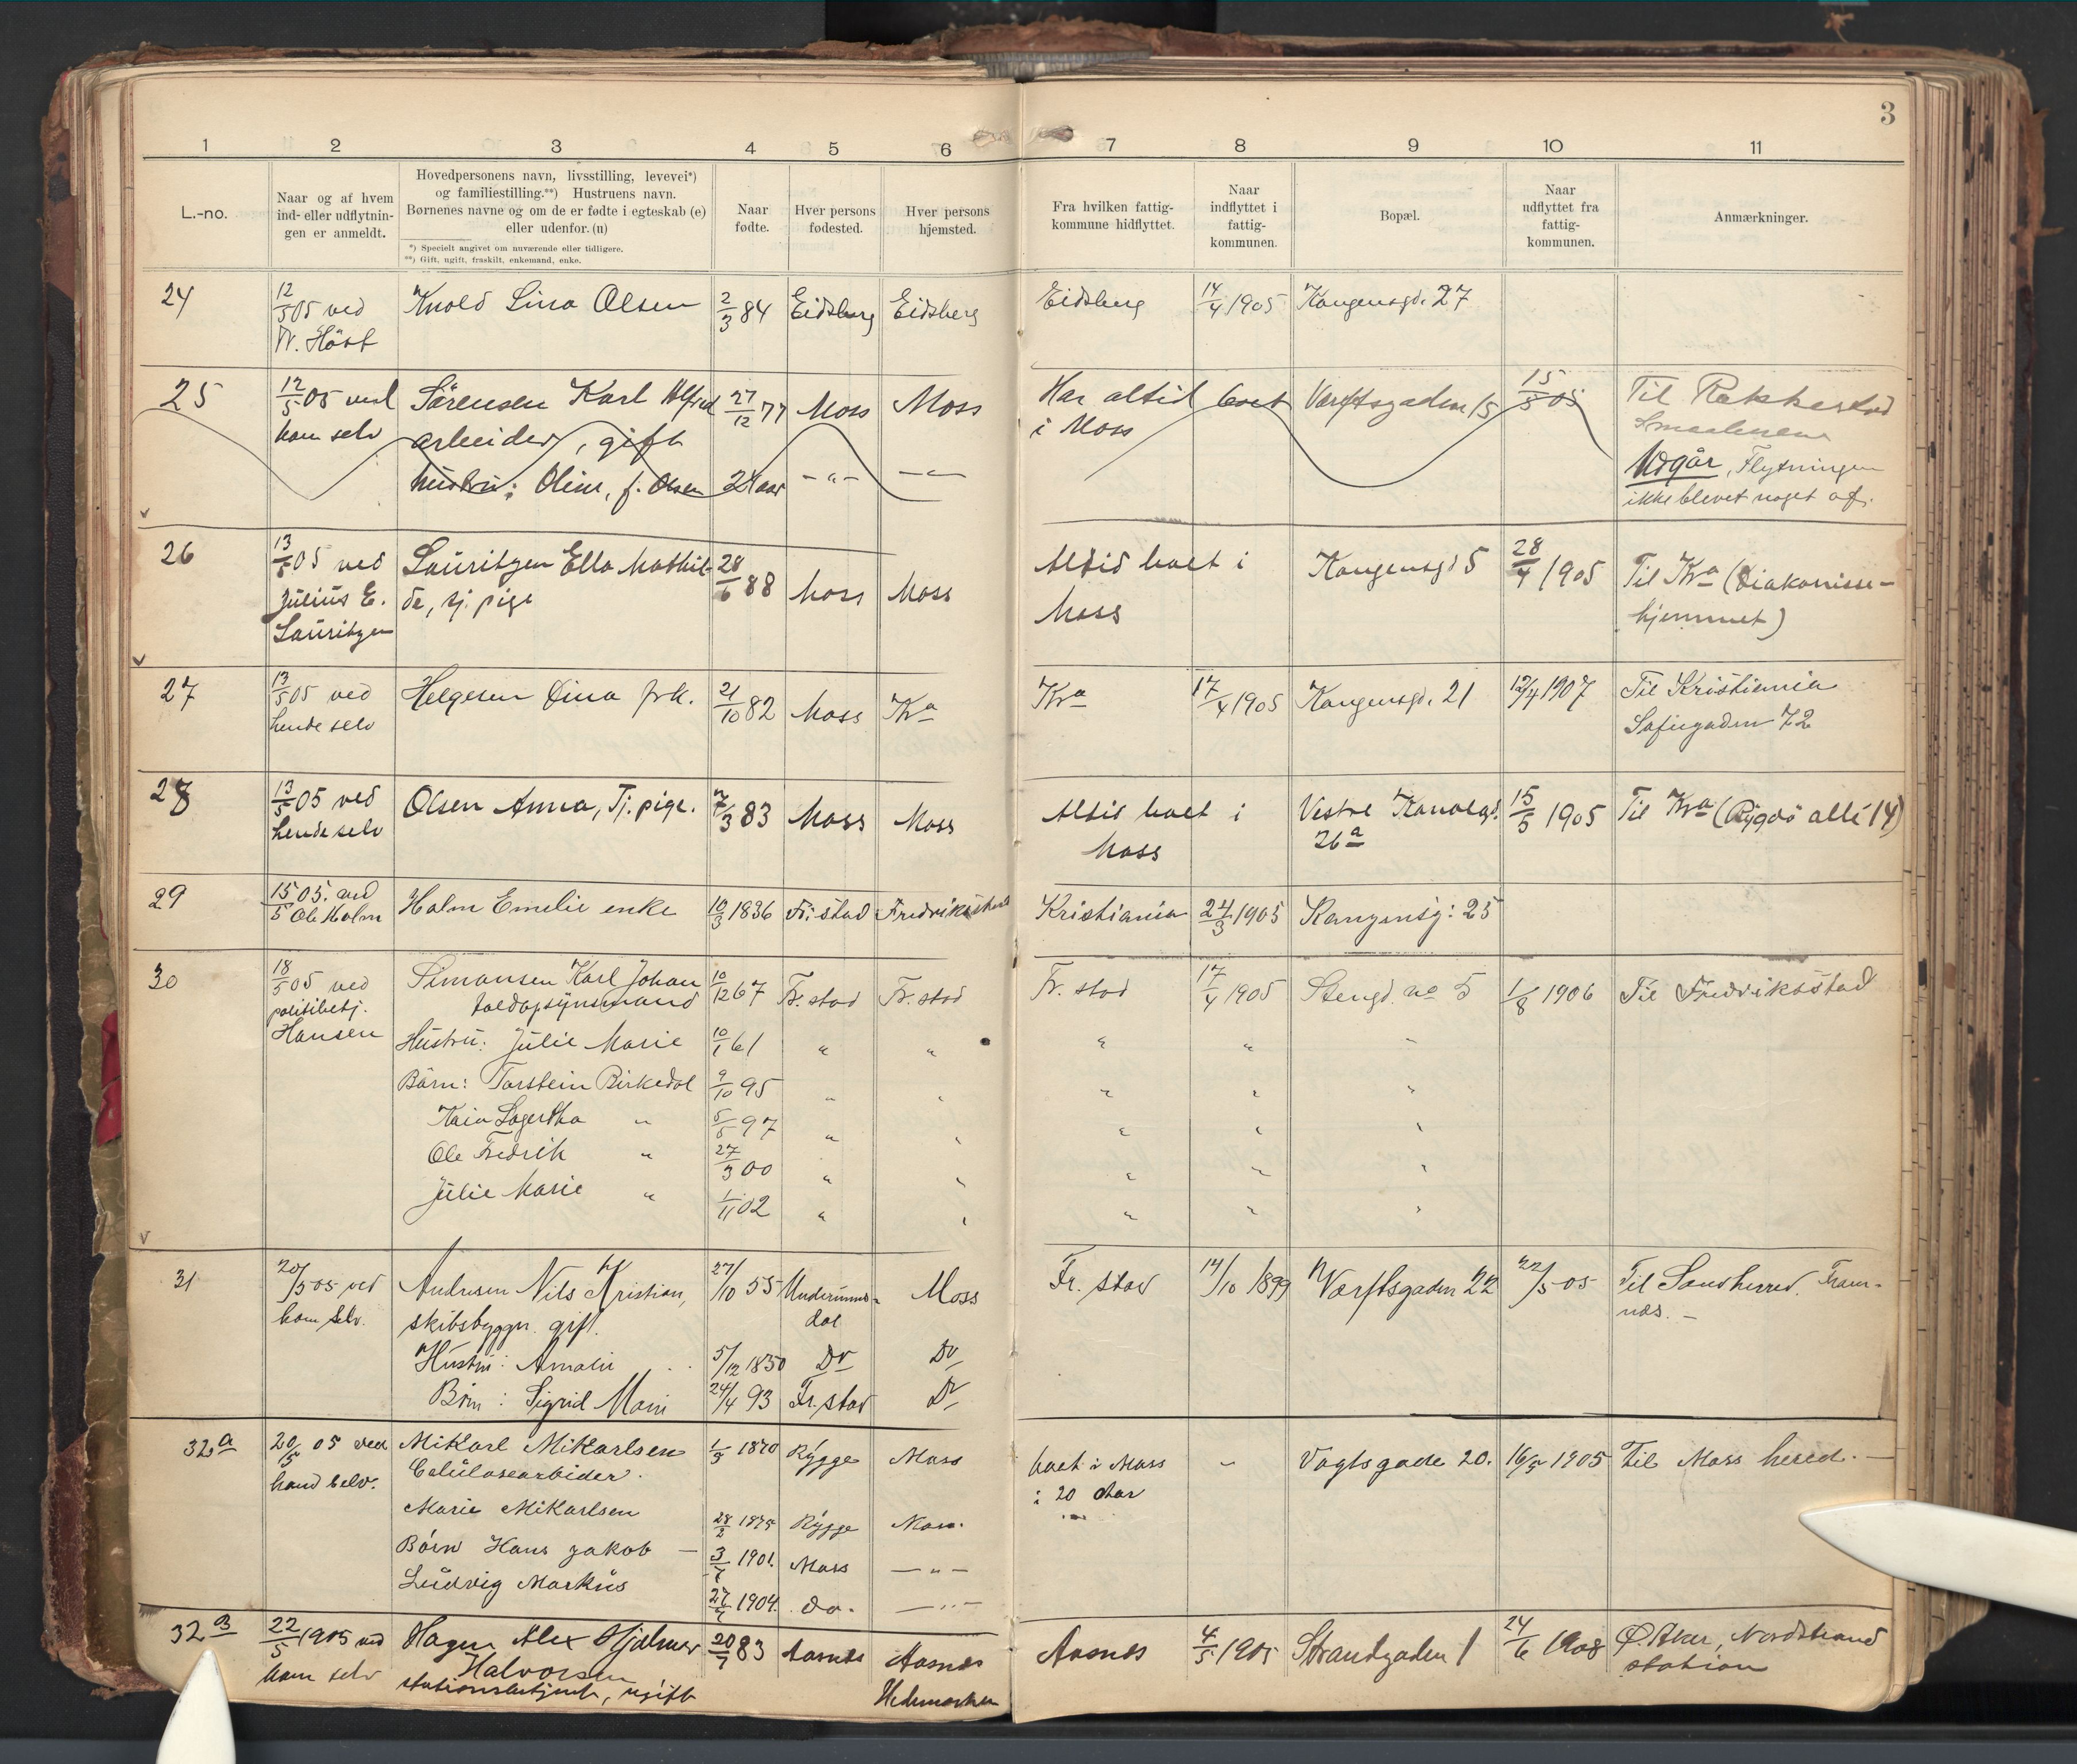 3
1 2 3 4 5 6 7 8 9 10 11
L.-no.
Naar og af hvem
ind- eller udflytnin-
gen er anmeldt.
Hovedpersonens navn, livsstilling, levevei*)
og familiestilling.**) Hustruens navn.
Børnenes navne og om de er fødte i egteskab (e)
eller udenfor. (u)
*) Specielt angivet om nuværende eller tidligere.
**) Gift, ugift, fraskilt, enkemand, enke.
Naar
fødte.
Hver persons
fødested.
Hver persons
hjemsted.
Fra hvilken fattig-
kommune hidflyttet.
Naar
indflyttet i
fattig-
kommunen.
Bopæl.
Naar
udflyttet fra
fattig-
kommunen.
Anmærkninger.
24 12/5 05 ved Knold Lina Olsen 2/3 84 Eidsberg Eidsberg Eidsberg 14/4 1905 Kongensgd. 27
W. Höst
25 12/5 05 ved Sörensen Karl Alfred 27/12 77 Moss Moss Har altid boet Værftsgaden 15 15/5 05 Til Rakkestad
ham selv arbeider, gift i Moss
hustru: Oline, f. Olsen 24 aar -"- -"- Udgår, Flytningen
ikke blevet noget af.
26 13/5 05 ved Lauritzen Ella Mathil- 28/6 88 Moss Moss Altid boet i Kongensgd 5 28/4 1905 Til Kra (Diakonisse-
Julius E. de, tj. pige Moss hjemmet)
Lauritzen
27 13/5 05 ved Helgesen Dina frk. 21/10 82 Moss Kra Kra 17/4 1905 Kongensgd. 21 12/4 1907 Til Kristiania
hende selv Sofiegaden 72
28 13/5 05 ved Olsen Anna, Tj. pige. 7/3 83 Moss Moss Altid boet i Vestre Kanalgd. 15/5 1905 Til Kra (Bygdö allé 14)
hende selv Moss 26a
29 15/5 05. ved Holm Emelie enke 10/3 1836 Fr. stad Fredrikstad Kristiania 24/3 1905 Kongensg: 25
Ole Holm
30 18/5 05 ved Simonsen Karl Johan 10/12 67 Fr. stad Fr. stad Fr. stad 17/4 1905 Stengd. no 5 1/8 1906 Til Fredriksstad
politibetj. toldopsynsmand
Hansen Hustru: Julie Marie 10/1 61 " " " " "
Börn: Torstein Birkedal 9/10 95 " " " " "
Kaia Lagertha " 5/5 97 " " " " "
Ole Fredrik " 27/3 00 " " " " "
Julie Marie " 1/11 02 " " " " "
31 20/5 05 ved Andresen Nils Kristian, 27/10 55 Moss Fr. stad 14/10 1899 Værftsgaden 22 22/5 05 Til Sandherred. Fram-
ham selv. skibsbygger. gift. dal næs. -
Hustru: Amalie 5/12 1850 Do Do
Börn: Sigrid Marie 24/4 93 Fr. stad Do
32 a 20/5 05 ved Mikael Mikaelsen 1/3 1870 Rygge Moss boet i Moss " Vogtsgade 20. 16/5 1905 Til Moss hered. -
hand selv. Celulosearbider. i 20 Aar
Marie Mikaelsen 28/2 1875 Rygge Moss.
Börn Hans Jakob - 3/7 1901. Moss -"-
Ludvig Markus 27/7 1904. do. -"-
32 B 22/5 1905 ved Hagen Alex Hjalmar 20/7 83 Aasnes Aasnes Aasnes 4/5 1905 Strandgaden 1 24/6 1908 Ø. Aker, Nordstrand
ham selv Halvorsen Hedemarken station
stationsbetjent, ugift